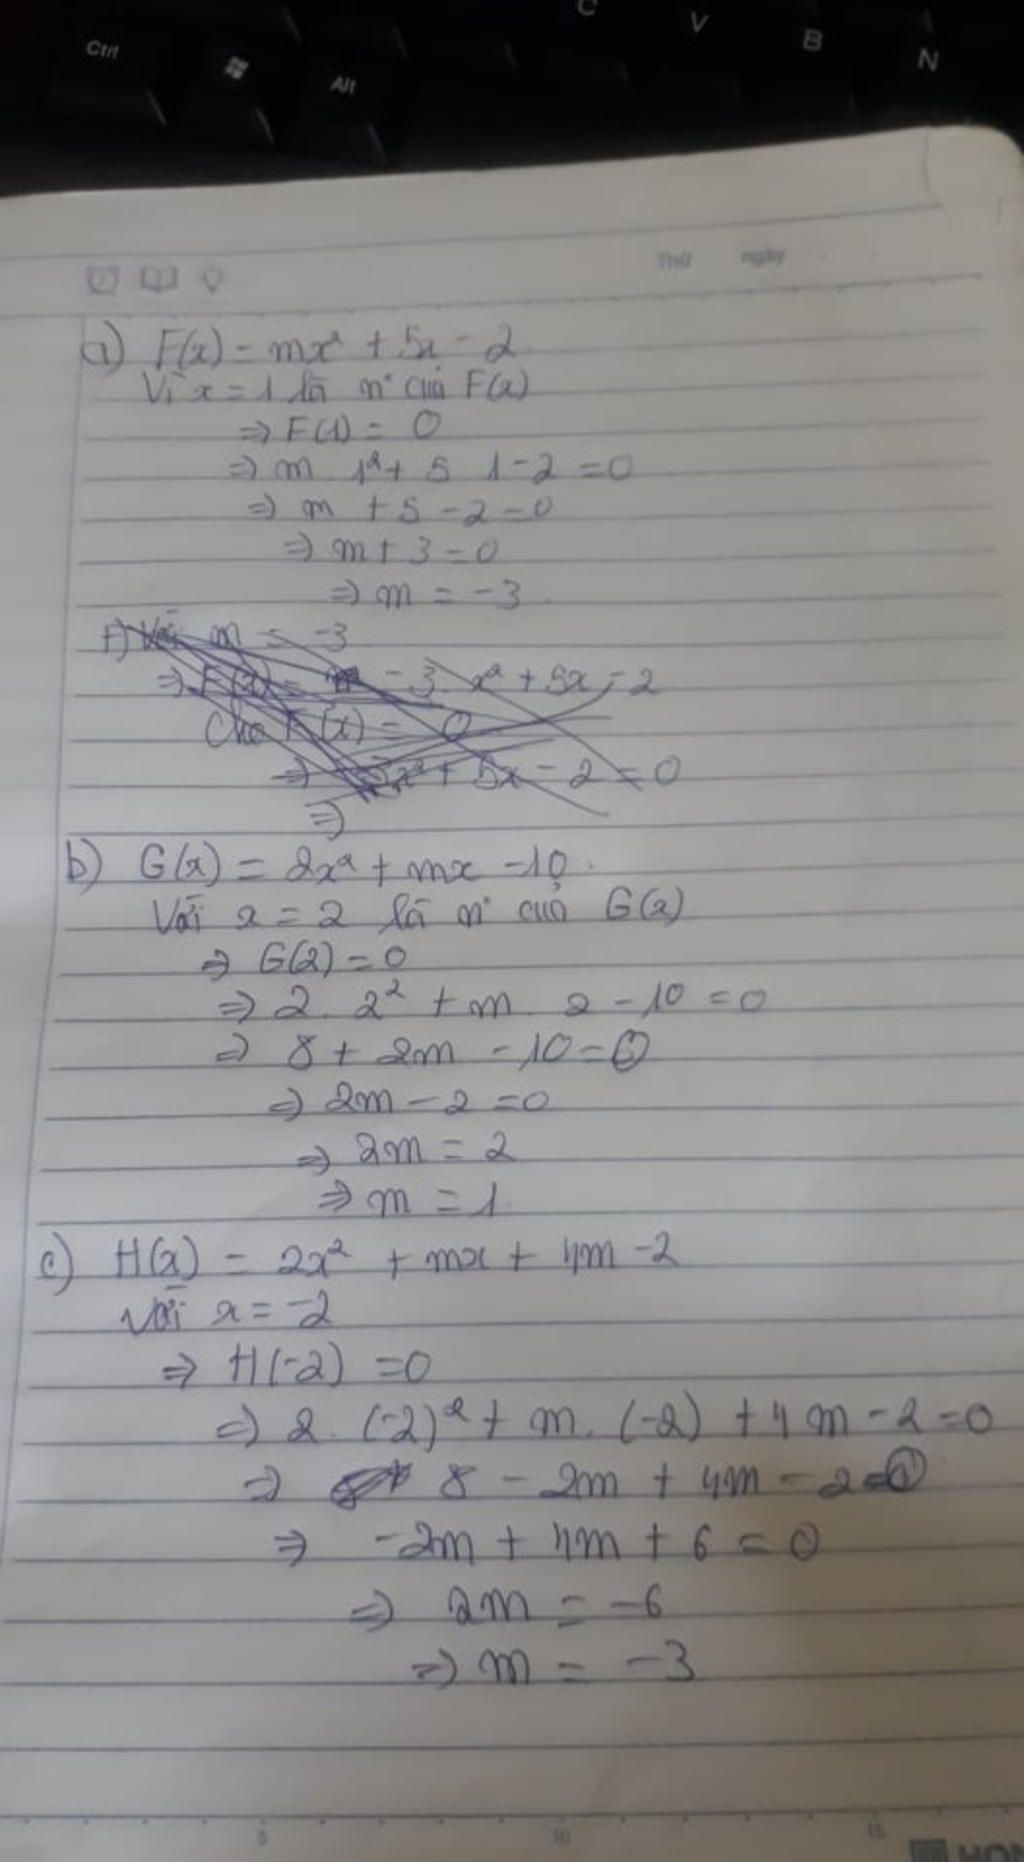 C
V
B
N
Ctrl
Alt
Thứ ngày
a) F(x) = mx² + 5x - 2
Vì x = 1 là n° của F(x)
⇒ F(1) = 0
⇒ m 1² + 5 1 - 2 = 0
⇒ m + 5 - 2 = 0
⇒ m + 3 = 0
⇒ m = -3
Với m = -3
⇒ F(x) = -3 x² + 5x - 2
Cho F(x) = 0
⇒ 3x² + 5x - 2 = 0
⇒
b) G(x) = 2x² + mx - 10.
Với x = 2 là n° của G(x)
⇒ G(2) = 0
⇒ 2. 2² + m. 2 - 10 = 0
⇒ 8 + 2m - 10 = 0
⇒ 2m - 2 = 0
⇒ 2m = 2
⇒ m = 1
c) H(x) = 2x² + mx + 4m - 2
Với x = -2
⇒ H(-2) = 0
⇒ 2. (-2)² + m. (-2) + 4m - 2 = 0
⇒ 8 - 2m + 4m - 2 = 0
⇒ -2m + 4m + 6 = 0
⇒ 2m = -6
⇒ m = -3
5 10 15